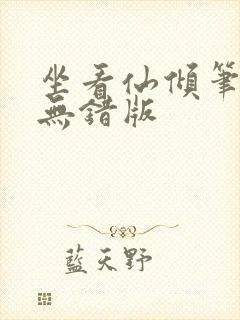 坐看仙傾筆
無錯版
藍天野